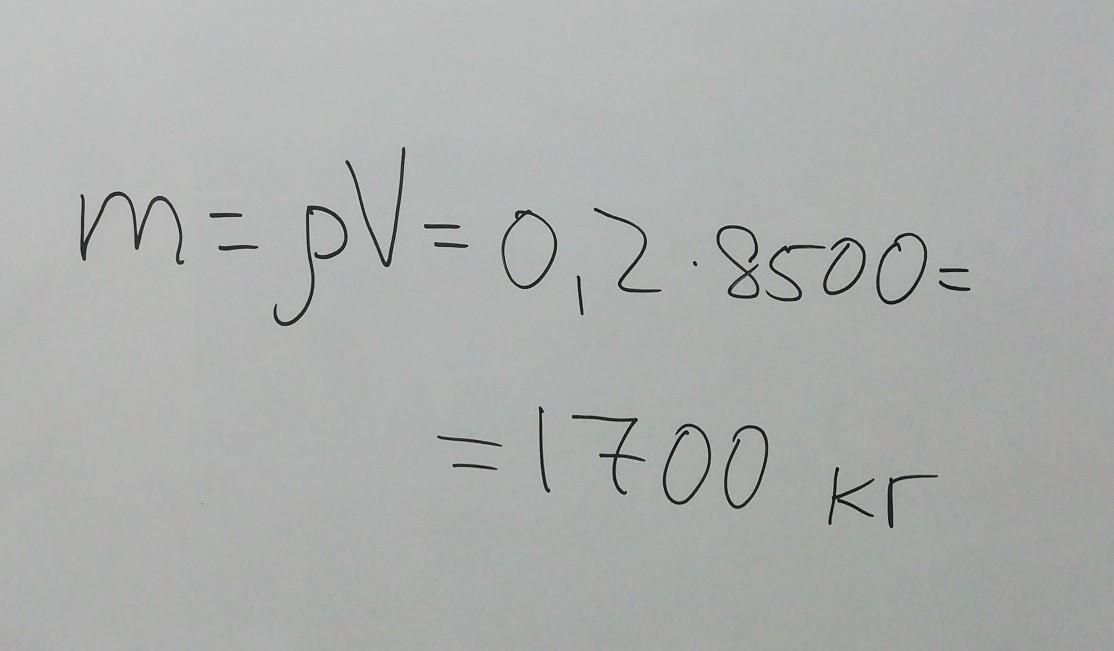 m = ρV = 0,2 · 8500 =
= 1700 кг